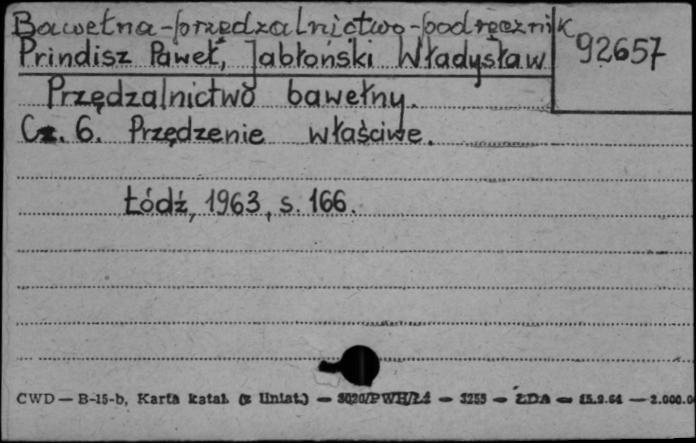 Bawełna-przędzalnictwo-podręcznik
92657
Prindisz Paweł, Jabłoński Władysław
Przędzalnictwo bawełny.
Cz. 6. Przędzenie właściwe.
Łódź, 1963, s. 166.
CWD — B-15-b, Karta katal. (z liniat.) — 3020/PWH/Ł4 — 3253 — ŁDA — 15.9.64 — 2.000.0